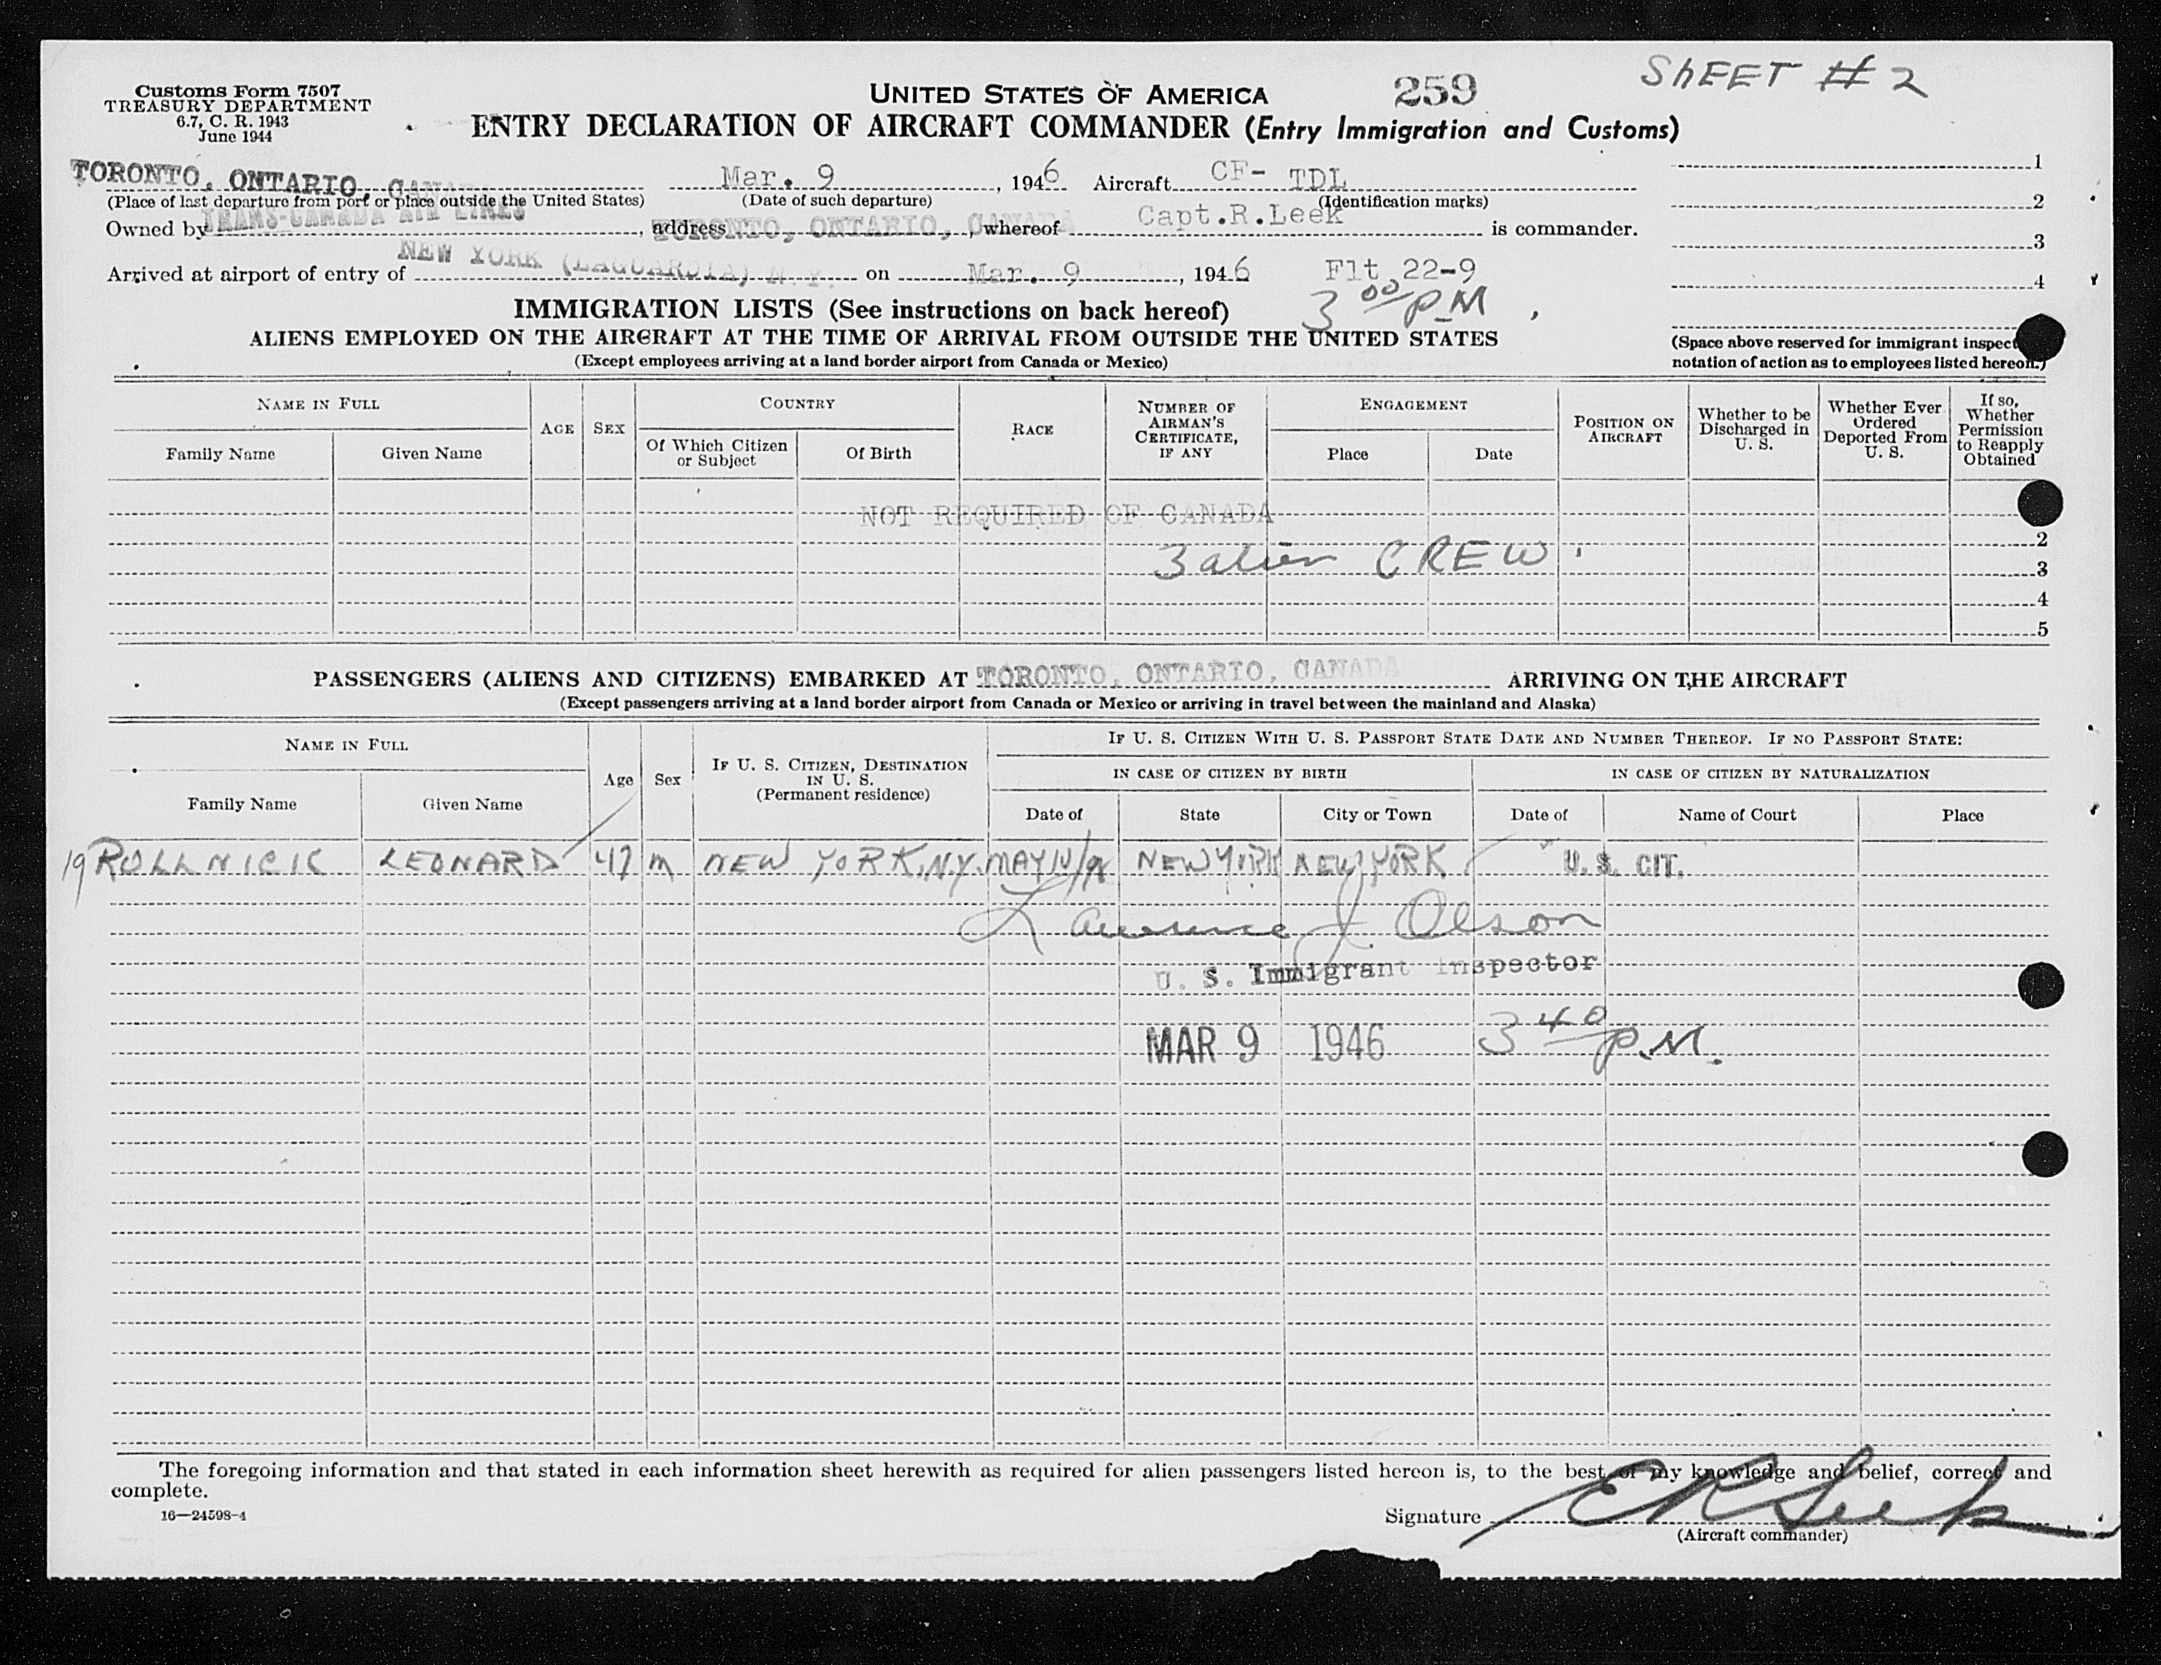 Customs Form 7507
TREASURY DEPARTMENT
6.7, C. R. 1943
June 1944
UNITED STATES OF AMERICA
259
SHEET #2
ENTRY DECLARATION OF AIRCRAFT COMMANDER (Entry Immigration and Customs)
TORONTO, ONTARIO, CANADA Mar. 9, 1946 Aircraft CF- TDL
(Place of last departure from port or place outside the United States) (Date of such departure) (Identification marks)
Owned by TRANS-CANADA AIR LINES, address TORONTO, ONTARIO, CANADA, whereof Capt.R.Leek is commander.
Arrived at airport of entry of NEW YORK (LAGUARDIA) N. Y. on Mar. 9, 1946 Flt 22-9
3 00 P.M
1
2
3
4
IMMIGRATION LISTS (See instructions on back hereof)
ALIENS EMPLOYED ON THE AIRCRAFT AT THE TIME OF ARRIVAL FROM OUTSIDE THE UNITED STATES
(Except employees arriving at a land border airport from Canada or Mexico)
(Space above reserved for immigrant inspect
notation of action as to employees listed hereon.)
NAME IN FULL
Family Name Given Name
AGE SEX
COUNTRY
Of Which Citizen or Subject Of Birth
RACE
NUMBER OF AIRMAN'S CERTIFICATE, IF ANY
ENGAGEMENT
Place Date
POSITION ON AIRCRAFT
Whether to be Discharged in U. S.
Whether Ever Ordered Deported From U. S.
If so, Whether Permission to Reapply Obtained
NOT REQUIRED OF CANADA
2
3 alien CREW
3
4
5
PASSENGERS (ALIENS AND CITIZENS) EMBARKED AT TORONTO, ONTARIO, CANADA ARRIVING ON THE AIRCRAFT
(Except passengers arriving at a land border airport from Canada or Mexico or arriving in travel between the mainland and Alaska)
NAME IN FULL
Family Name Given Name
Age Sex
IF U. S. CITIZEN, DESTINATION IN U. S. (Permanent residence)
IF U. S. CITIZEN WITH U. S. PASSPORT STATE DATE AND NUMBER THEREOF. IF NO PASSPORT STATE:
IN CASE OF CITIZEN BY BIRTH IN CASE OF CITIZEN BY NATURALIZATION
Date of State City or Town Date of Name of Court Place
19 ROLLNICK LEONARD 47 M NEW YORK, N.Y. MAY NEW YORK NEW YORK U. S. CIT.
Lawrence J. Olson
U. S. Immigrant Inspector
MAR 9 1946 3 40 P.M.
The foregoing information and that stated in each information sheet herewith as required for alien passengers listed hereon is, to the best of my knowledge and belief, correct and
complete.
16—24598-1
Signature E R Leek
(Aircraft commander)